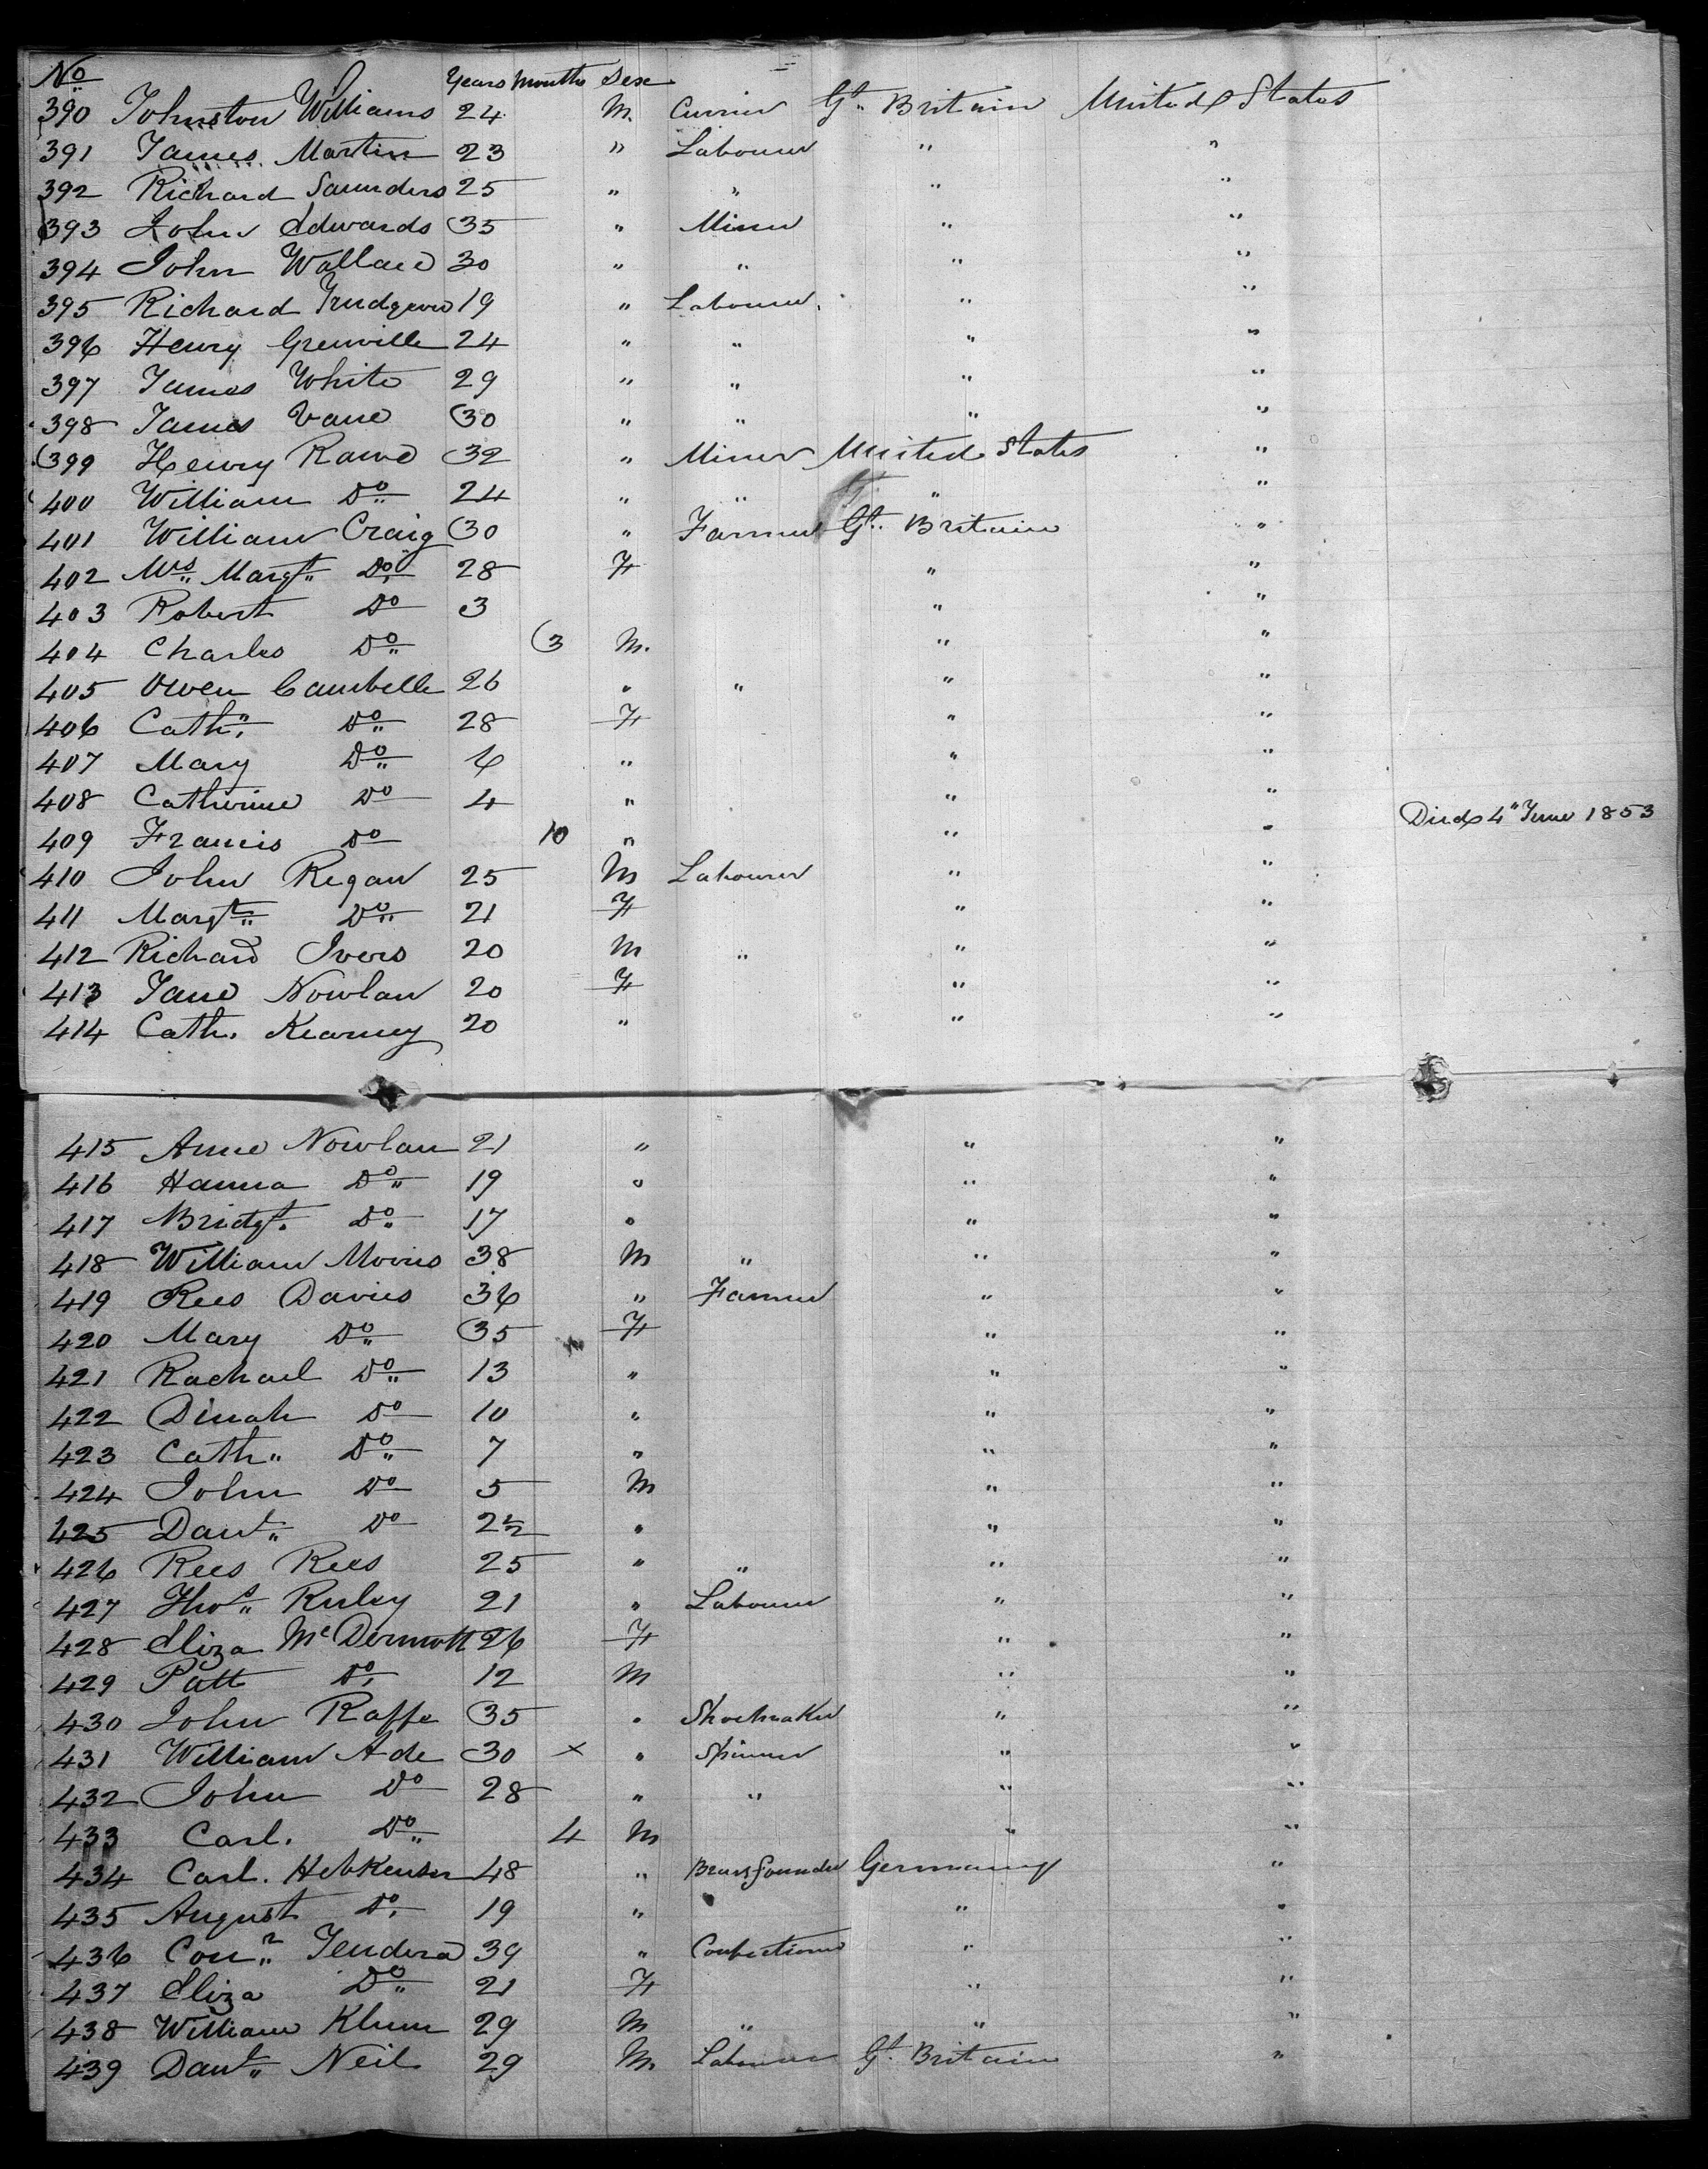 No Years Months Sex
390 Johnston Williams 24 M. Currier Gt. Britain United States
391 James Martin 23 " Labourer " "
392 Richard Saunders 25 " " " "
393 John Edwards 35 " Miner " "
394 John Wallace 30 " " " "
395 Richard 19 " Labourer " "
396 Henry Grenville 24 " " " "
397 James White 29 " " " "
398 James Vane 30 " " " "
399 Henry Rawe 32 " Miner United States "
400 William Do 24 " " " "
401 William Craig 30 " Farmer Gt. Britain "
402 Mrs. Margt. Do 28 F " "
403 Robert Do 3 " "
404 Charles Do 3 M. " "
405 Owen Cambelle 26 " " " "
406 Cathn. Do 28 F " "
407 Mary Do 6 " " "
408 Catherine Do 4 " " "
409 Francis Do 10 " " " Died 4" June 1853
410 John Regan 25 M Labourer " "
411 Margt. Do 21 F " "
412 Richard Ivers 20 M " " "
413 Jane Nowlan 20 F " "
414 Cath. Kearney 20 " " "
415 Anne Nowlan 21 " " "
416 Hanna Do 19 " " "
417 Bridgt. Do 17 " " "
418 William Morris 38 M " " "
419 Rees Davies 36 " Farmer " "
420 Mary Do 35 F " "
421 Rachael Do 13 " " "
422 Dinah Do 10 " " "
423 Cath" Do 7 " " "
424 John Do 5 M " "
425 Danl. Do 2½ " " "
426 Rees Rees 25 " " " "
427 Thos. Ruley 21 " Labourer " "
428 Eliza McDermott 26 F " "
429 Patt Do. 12 M " "
430 John Raffe 35 " Shoemaker " "
431 William Ade 30 x " Spinner " "
432 John Do 28 " " " "
433 Carl. Do 4 M " "
434 Carl. 48 " Brass founder Germany "
435 August Do. 19 " " "
436 39 " Confectioner " "
437 Eliza Do 21 F " "
438 William Klum 29 M " " "
439 Danl. Neil 29 M. Labourer Gt. Britain "